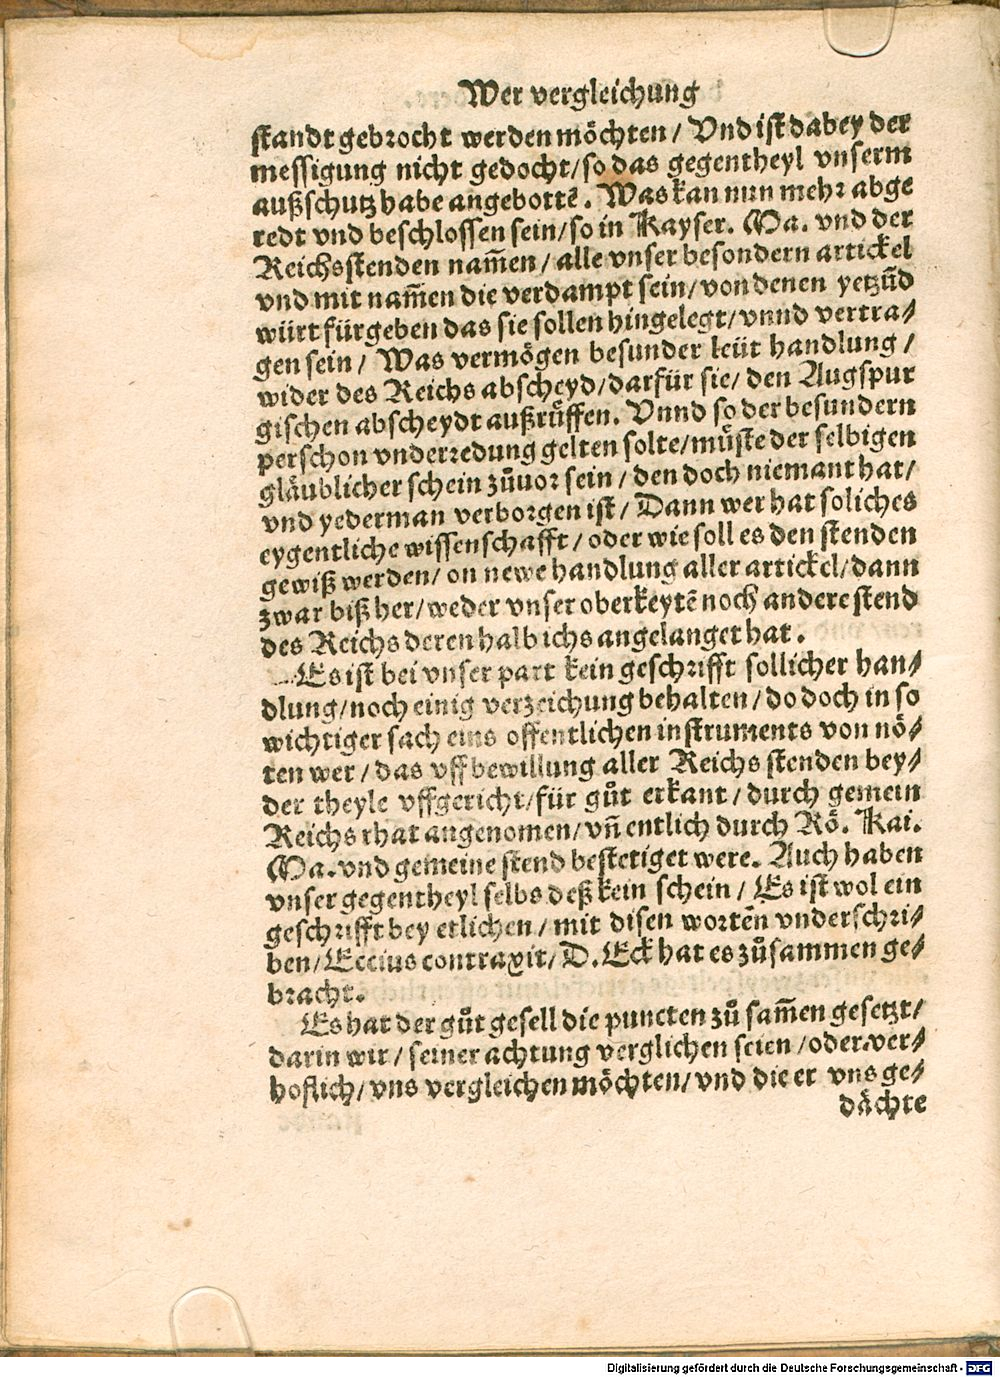 Wer vergleichung
standt gebrocht werden möchten / Vnd ist dabey der
messigung nicht gedocht / so das gegentheyl vnserm
außschutz habe angebottē. Was kan nun mehr abge
redt vnd beschlossen sein / so in Kayser. Ma. vnd der
Reichsstenden nam̄en / alle vnser besondern artickel
vnd mit nam̄en die verdampt sein / von denen yetzūd
würt fürgeben das sie sollen hingelegt / vnnd vertra⸗
gen sein / Was vermögen besunder leüt handlung /
wider des Reichs abscheyd / darfür sie / den Augspur
gischen abscheydt außrůffen. Vnnd so der besundern
perschon vnderredung gelten solte / müste der selbigen
gläublicher schein zůuor sein / den doch niemant hat /
vnd yederman verborgen ist / Dann wer hat soliches
eygentliche wissenschafft / oder wie soll es den stenden
gewiß werden / on newe handlung aller artickel / dann
zwar biß her / weder vnser oberkeytē noch andere stend
des Reichs derenhalb ichs angelanget hat.
Es ist bei vnser part kein geschrifft sollicher han⸗
dlung / noch einig verzeichung behalten / do doch in so
wichtiger sach eins offentlichen instruments von nö⸗
ten wer / das vff bewillung aller Reichs stenden bey⸗
der theyle vffgericht / für gůt erkant / durch gemein
Reichs rhat angenomen / vn̄ entlich durch Rö. Kai.
Ma. vnd gemeine stend bestetiget were. Auch haben
vnser gegentheyl selbs deß kein schein / Es ist wol ein
geschrifft bey etlichen / mit disen wortēn vnderschri⸗
ben / Eccius contraxit / D. Eck hat es zůsammen ge⸗
bracht.
Es hat der gůt gesell die puncten zů sam̄en gesetzt /
darin wir / seiner achtung verglichen seien / oder ver⸗
hoflich / vns vergleichen möchten / vnd die er vns ge⸗
dächte
Digitalisierung gefördert durch die Deutsche Forschungsgemeinschaft - DFG